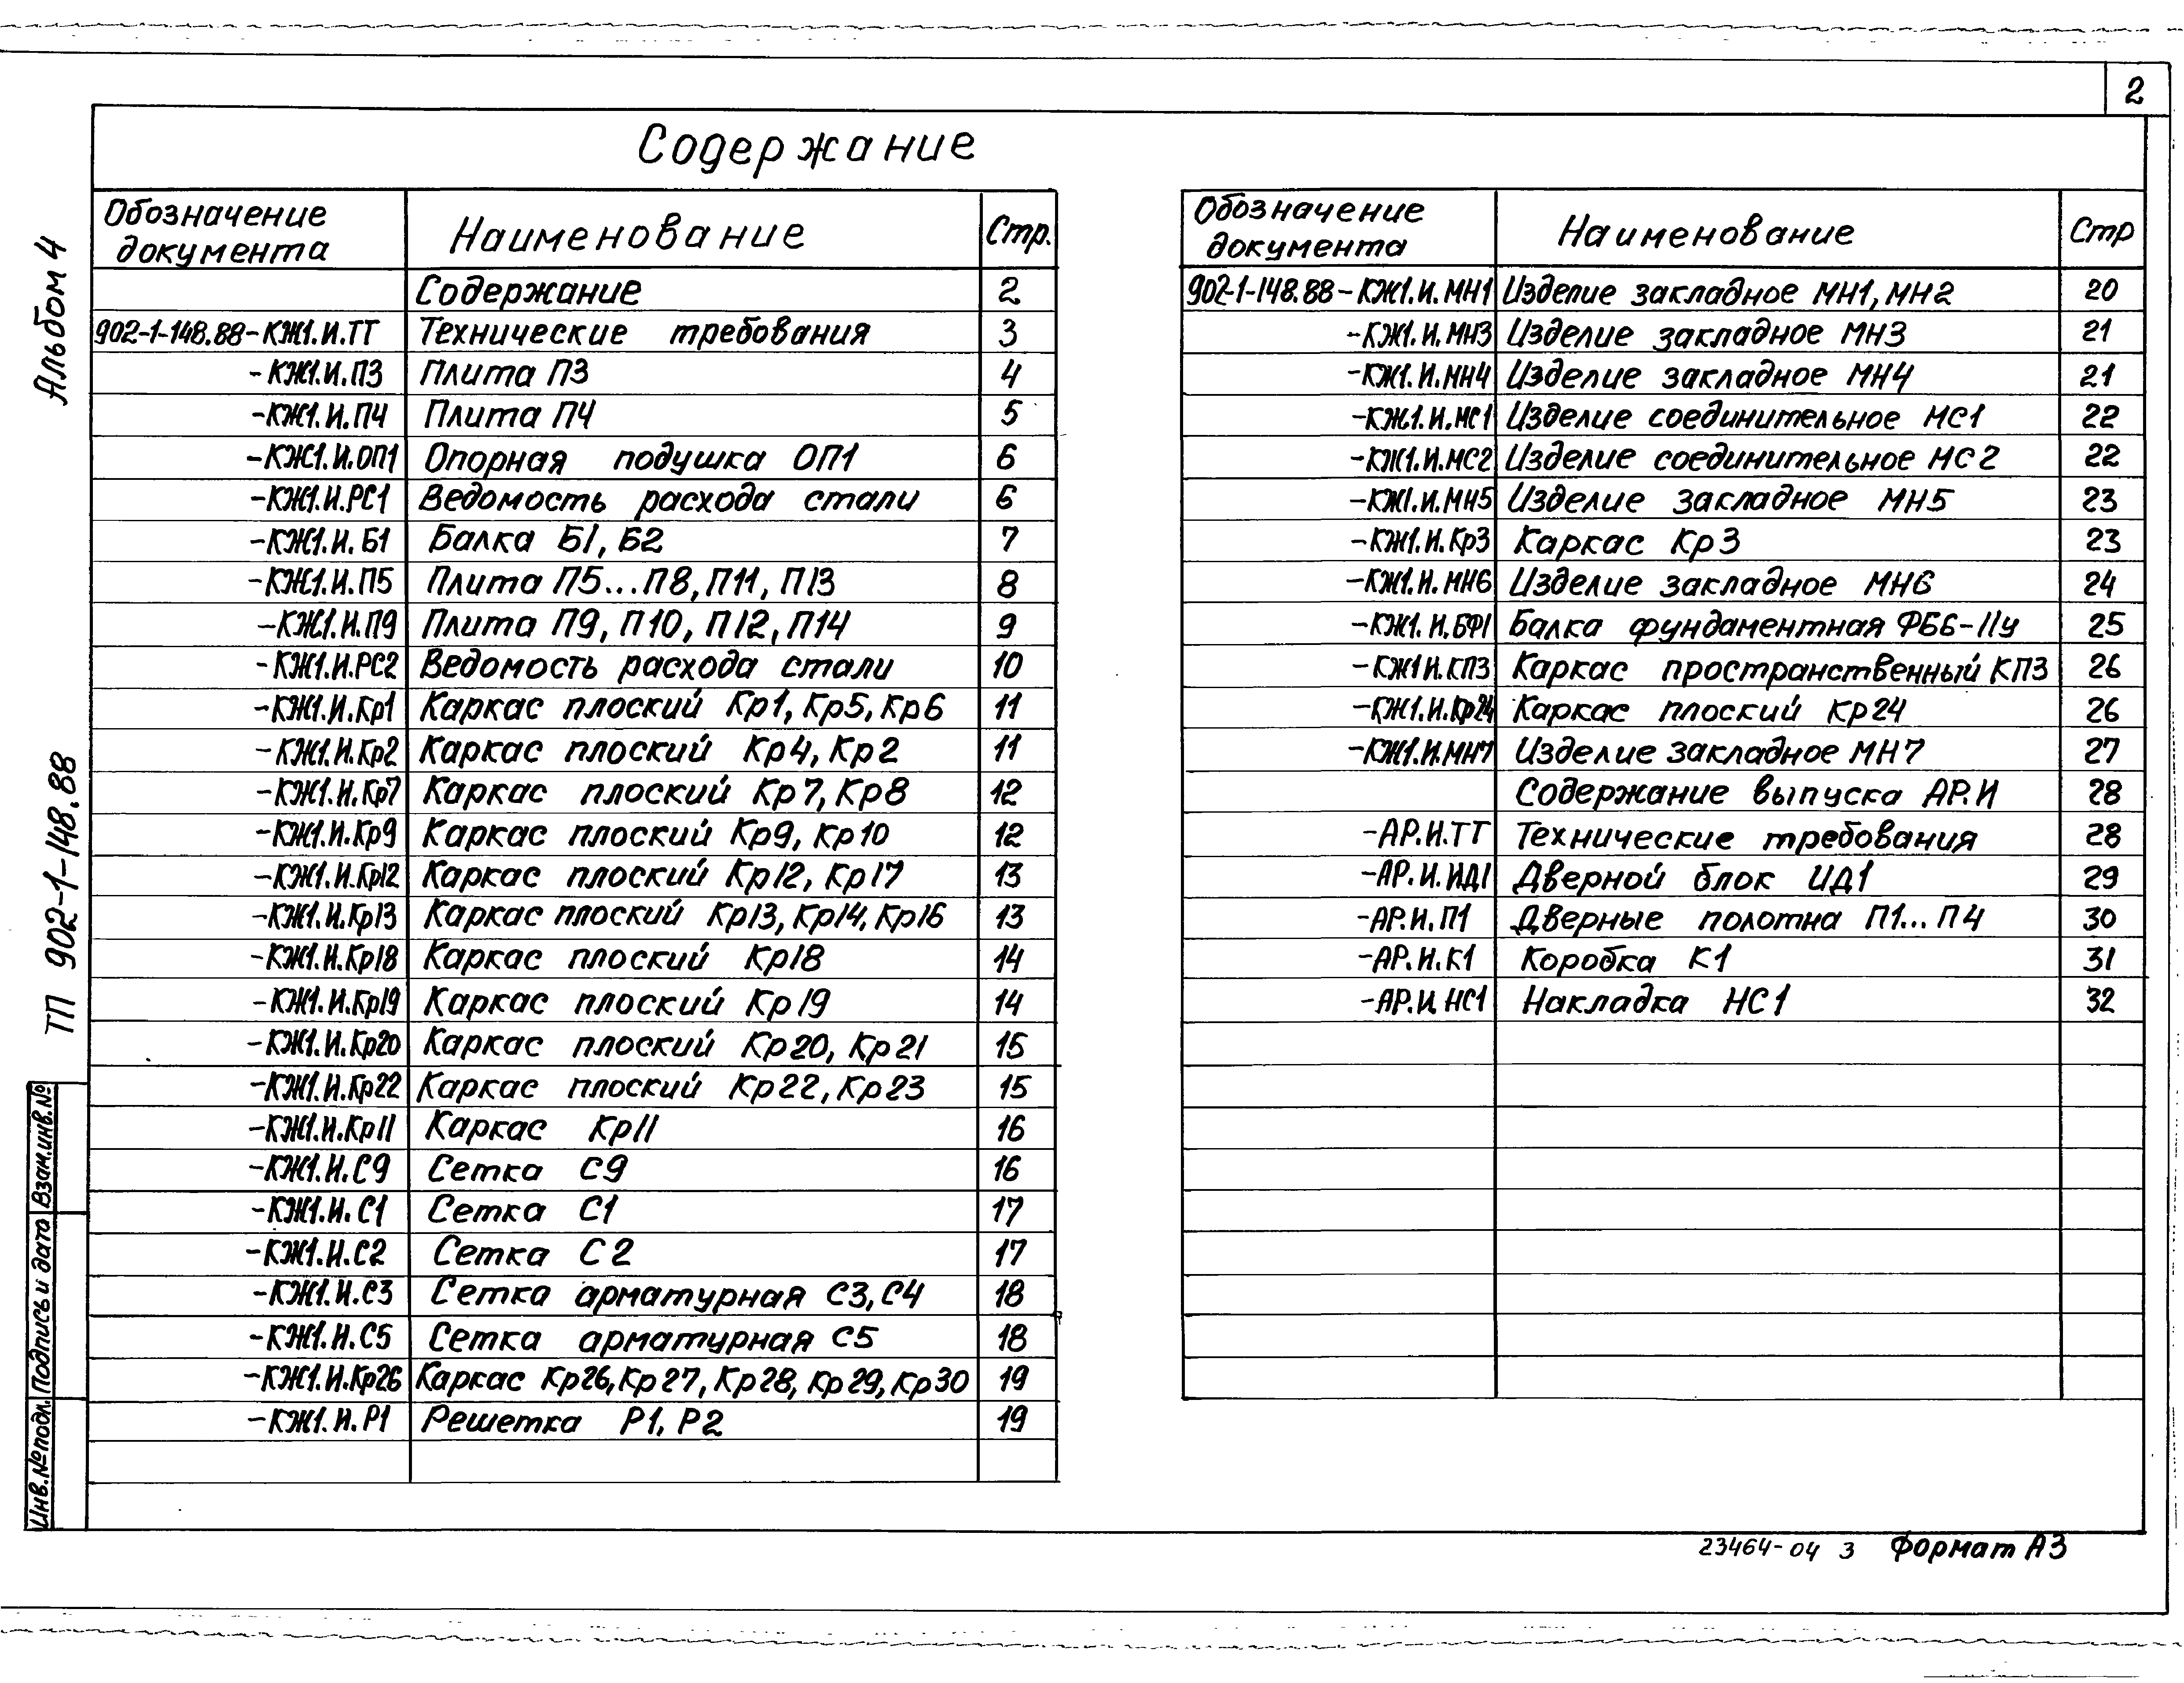 2
Содержание
Альбом 4
ТП 902-1-148.88
Обозначение документа Наименование Стр.
Содержание 2
902-1-148.88-КЖ1.И.ТТ Технические требования 3
-КЖ1.И.П3 Плита П3 4
-КЖ1.И.П4 Плита П4 5
-КЖ1.И.ОП1 Опорная подушка ОП1 6
-КЖ1.И.РС1 Ведомость расхода стали 6
-КЖ1.И.Б1 Балка Б1, Б2 7
-КЖ1.И.П5 Плита П5...П8, П11, П13 8
-КЖ1.И.П9 Плита П9, П10, П12, П14 9
-КЖ1.И.РС2 Ведомость расхода стали 10
-КЖ1.И.Кр1 Каркас плоский Кр1, Кр5, Кр6 11
-КЖ1.И.Кр2 Каркас плоский Кр4, Кр2 11
-КЖ1.И.Кр7 Каркас плоский Кр7, Кр8 12
-КЖ1.И.Кр9 Каркас плоский Кр9, Кр10 12
-КЖ1.И.Кр12 Каркас плоский Кр12, Кр17 13
-КЖ1.И.Кр13 Каркас плоский Кр13, Кр14, Кр16 13
-КЖ1.И.Кр18 Каркас плоский Кр18 14
-КЖ1.И.Кр19 Каркас плоский Кр19 14
-КЖ1.И.Кр20 Каркас плоский Кр20, Кр21 15
-КЖ1.И.Кр22 Каркас плоский Кр22, Кр23 15
-КЖ1.И.Кр11 Каркас Кр11 16
-КЖ1.И.С9 Сетка С9 16
-КЖ1.И.С1 Сетка С1 17
-КЖ1.И.С2 Сетка С2 17
-КЖ1.И.С3 Сетка арматурная С3, С4 18
-КЖ1.И.С5 Сетка арматурная С5 18
-КЖ1.И.Кр26 Каркас Кр26, Кр27, Кр28, Кр29, Кр30 19
-КЖ1.И.Р1 Решетка Р1, Р2 19
Обозначение документа Наименование Стр
902-1-148.88-КЖ1.И.МН1 Изделие закладное МН1, МН2 20
-КЖ1.И.МН3 Изделие закладное МН3 21
-КЖ1.И.МН4 Изделие закладное МН4 21
-КЖ1.И.МС1 Изделие соединительное МС1 22
-КЖ1.И.МС2 Изделие соединительное МС2 22
-КЖ1.И.МН5 Изделие закладное МН5 23
-КЖ1.И.Кр3 Каркас Кр3 23
-КЖ1.И.МН6 Изделие закладное МН6 24
-КЖ1.И.БФ1 Балка фундаментная ФБ6-11у 25
-КЖ1.И.КП3 Каркас пространственный КП3 26
-КЖ1.И.Кр24 Каркас плоский Кр24 26
-КЖ1.И.МН7 Изделие закладное МН7 27
Содержание выпуска АР.И 28
-АР.И.ТТ Технические требования 28
-АР.И.ИД1 Дверной блок ИД1 29
-АР.И.П1 Дверные полотна П1...П4 30
-АР.И.К1 Коробка К1 31
-АР.И.НС1 Накладка НС1 32
Инв.№ подл. Подпись и дата Взам.инв.№
23464-04 3 Формат А3